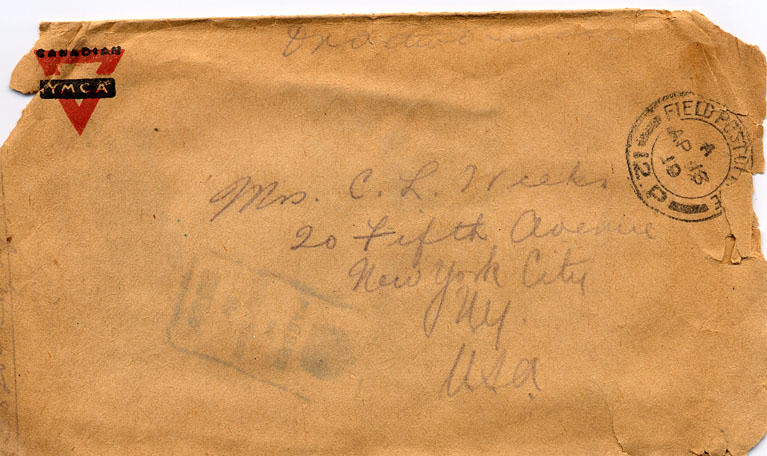 CANADIAN
YMCA
FIELD POST OFFICE
A
AP 15
19
12.P
Mrs. C. L. Weeks
20 Fifth Avenue
New York City
NY.
USA